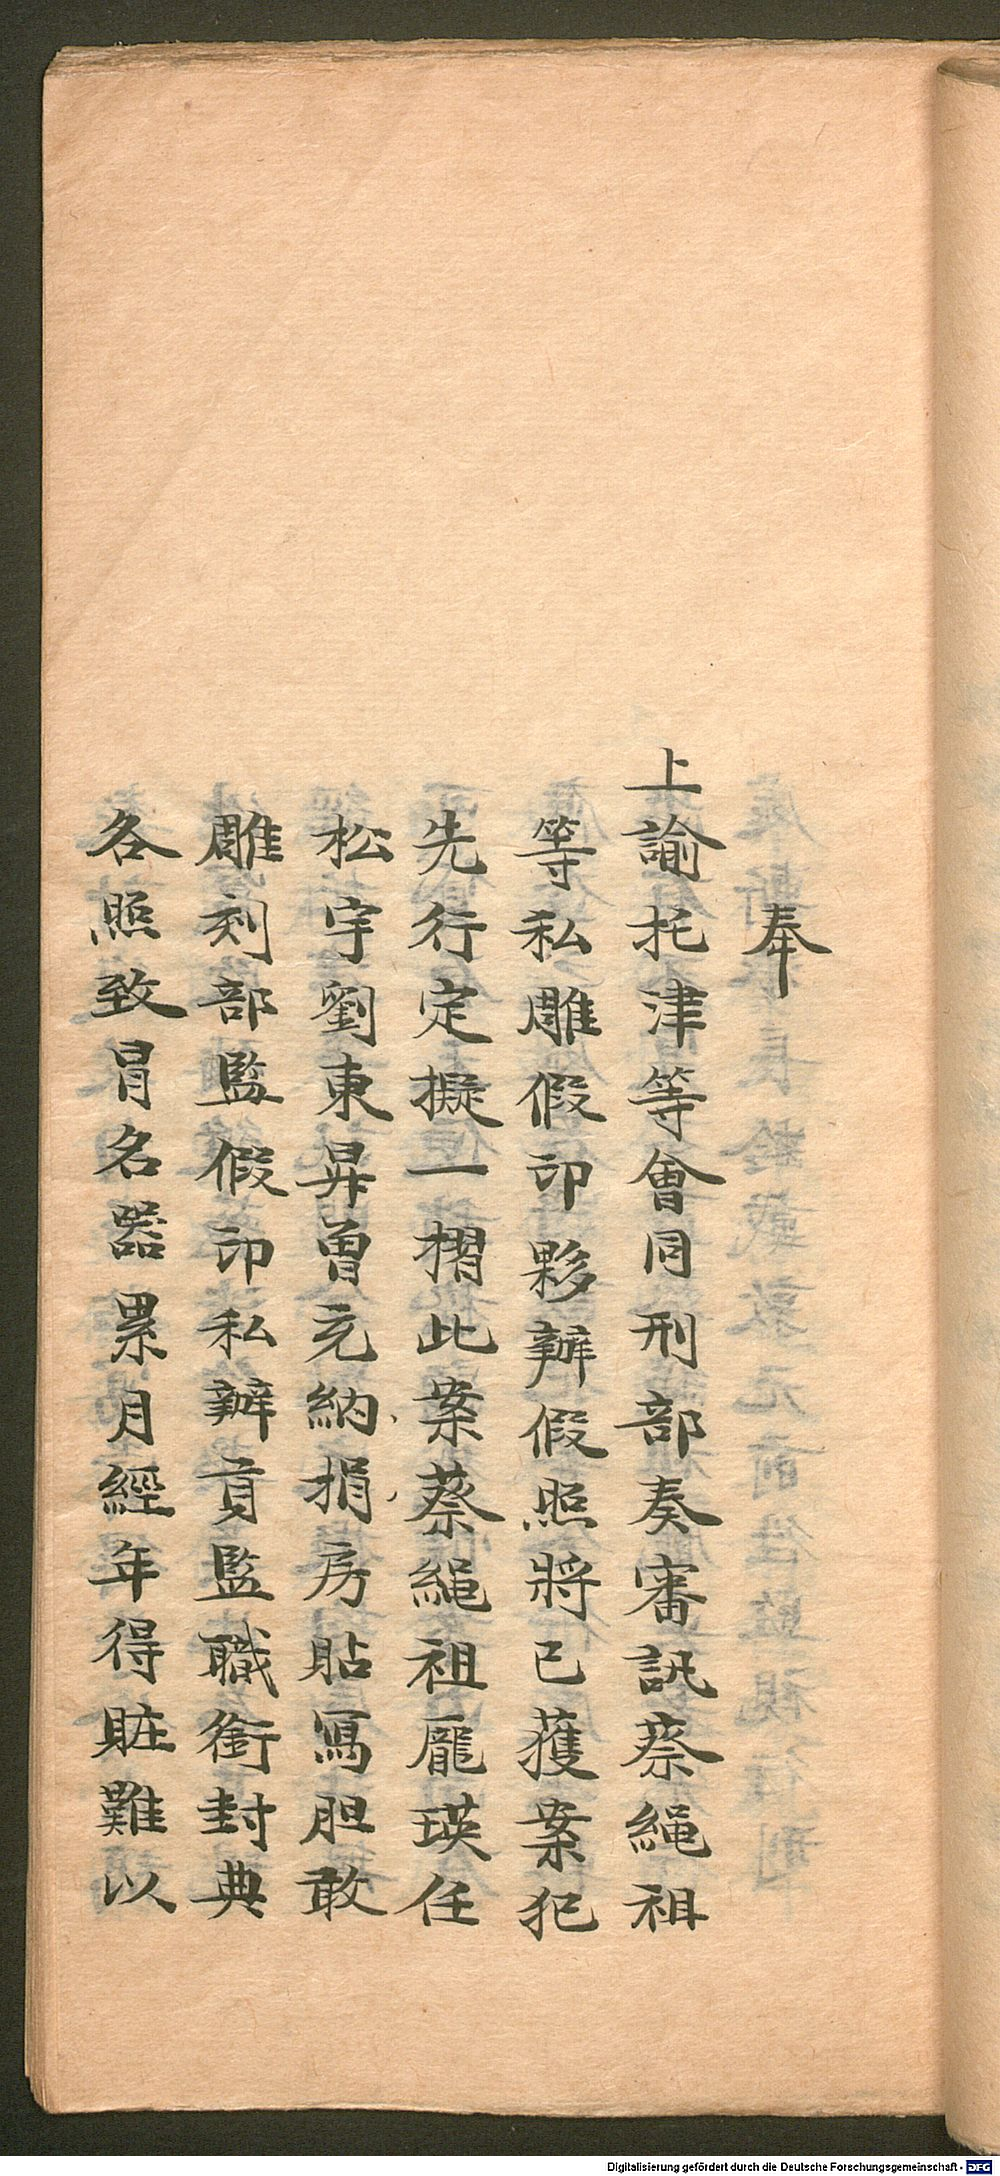 奉
上諭托津等會同刑部奏審訊蔡繩祖
等私雕假印夥辦假照將已獲案犯
先行定擬一摺此案蔡繩祖龐瑛任
松宇劉東昇曾元納捐房貼寫胆敢
雕刻部監假印私辦貢監職銜封典
各照致冒名器累月經年得賍難以
Digitalisierung gefördert durch die Deutsche Forschungsgemeinschaft - DFG